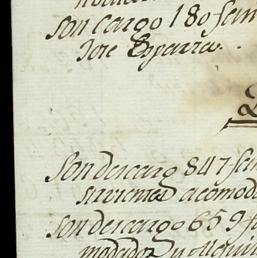 Son cargo 180 fan
Jose Esparza.
Son descargo 847 fan
sirvientes acomoda
Son descargo 659 f
modados y